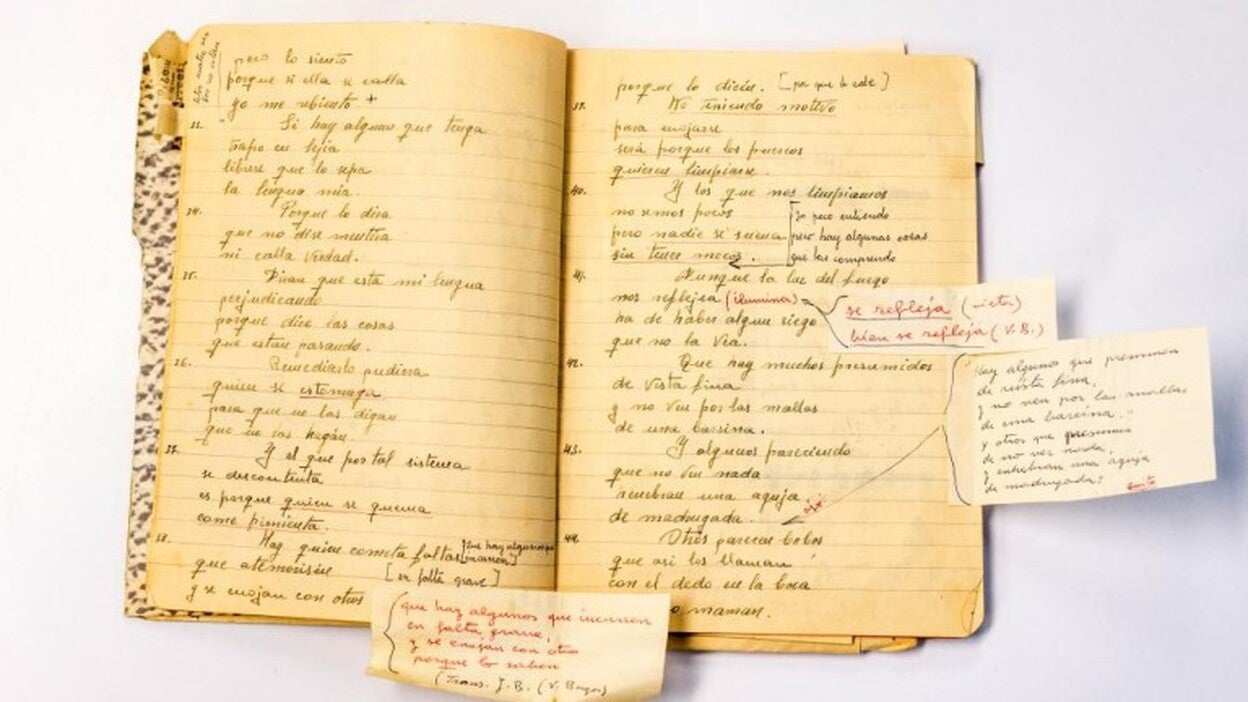 pero lo siento
porque si ella se calla
yo me rebiento +
33.
Si hay alguno que tenga
trapo en lejía
librese que lo sepa
la lengua mía.
34.
Porque lo dira
que no dise mentira
ni calla verdad.
35.
Diran que esta mi lengua
perjudicando
porque dice las cosas
que estan pasando.
36.
Remediarlo pudiera
quien se estomaga
para que no las digan
que no las hagan.
37.
Y el que por tal sistema
se descontenta
es porque quien se quema
come pimienta.
38.
Hay quien cometa faltas
[que hay algunos que
incurren]
que atemorisen
[en falta grave]
y se enojan con otros
que hay algunos que incurren
en falta grave,
y se enojan con otro
porque lo saben
(Trans. J. B. (V. Burgos)
porque lo dicen. [por que lo sabe]
39.
No teniendo motivo
para enojarse
será porque los puercos
quieren limpiarse.
40.
Y los que nos limpiamos
no semos pocos
pero nadie se suena
sin tener mocos.
Yo pero entiendo
pero hay algunas cosas
que las comprendo
41.
Aunque la luz del fuego
nos reflejea (ilumina)
ha de haber algun siego
que no la vea.
se refleja (nieto)
bien se refleja (V. B.)
42.
Que hay muchos presumidos
de vista fina
y no ven por las mallas
de una barsina.
43.
Y algunos pareciendo
que no ven nada
enebran una aguja
de madrugada.
ojo
Hay algunos que presumen
de vista fina,
y no ven por las mallas
de una barcina.
y otros que presumen
de no ver nada,
y enhebran una aguja
de madrugada!
44.
Otros parecen bobos
que asi los llaman
con el dedo en la boca
o maman.